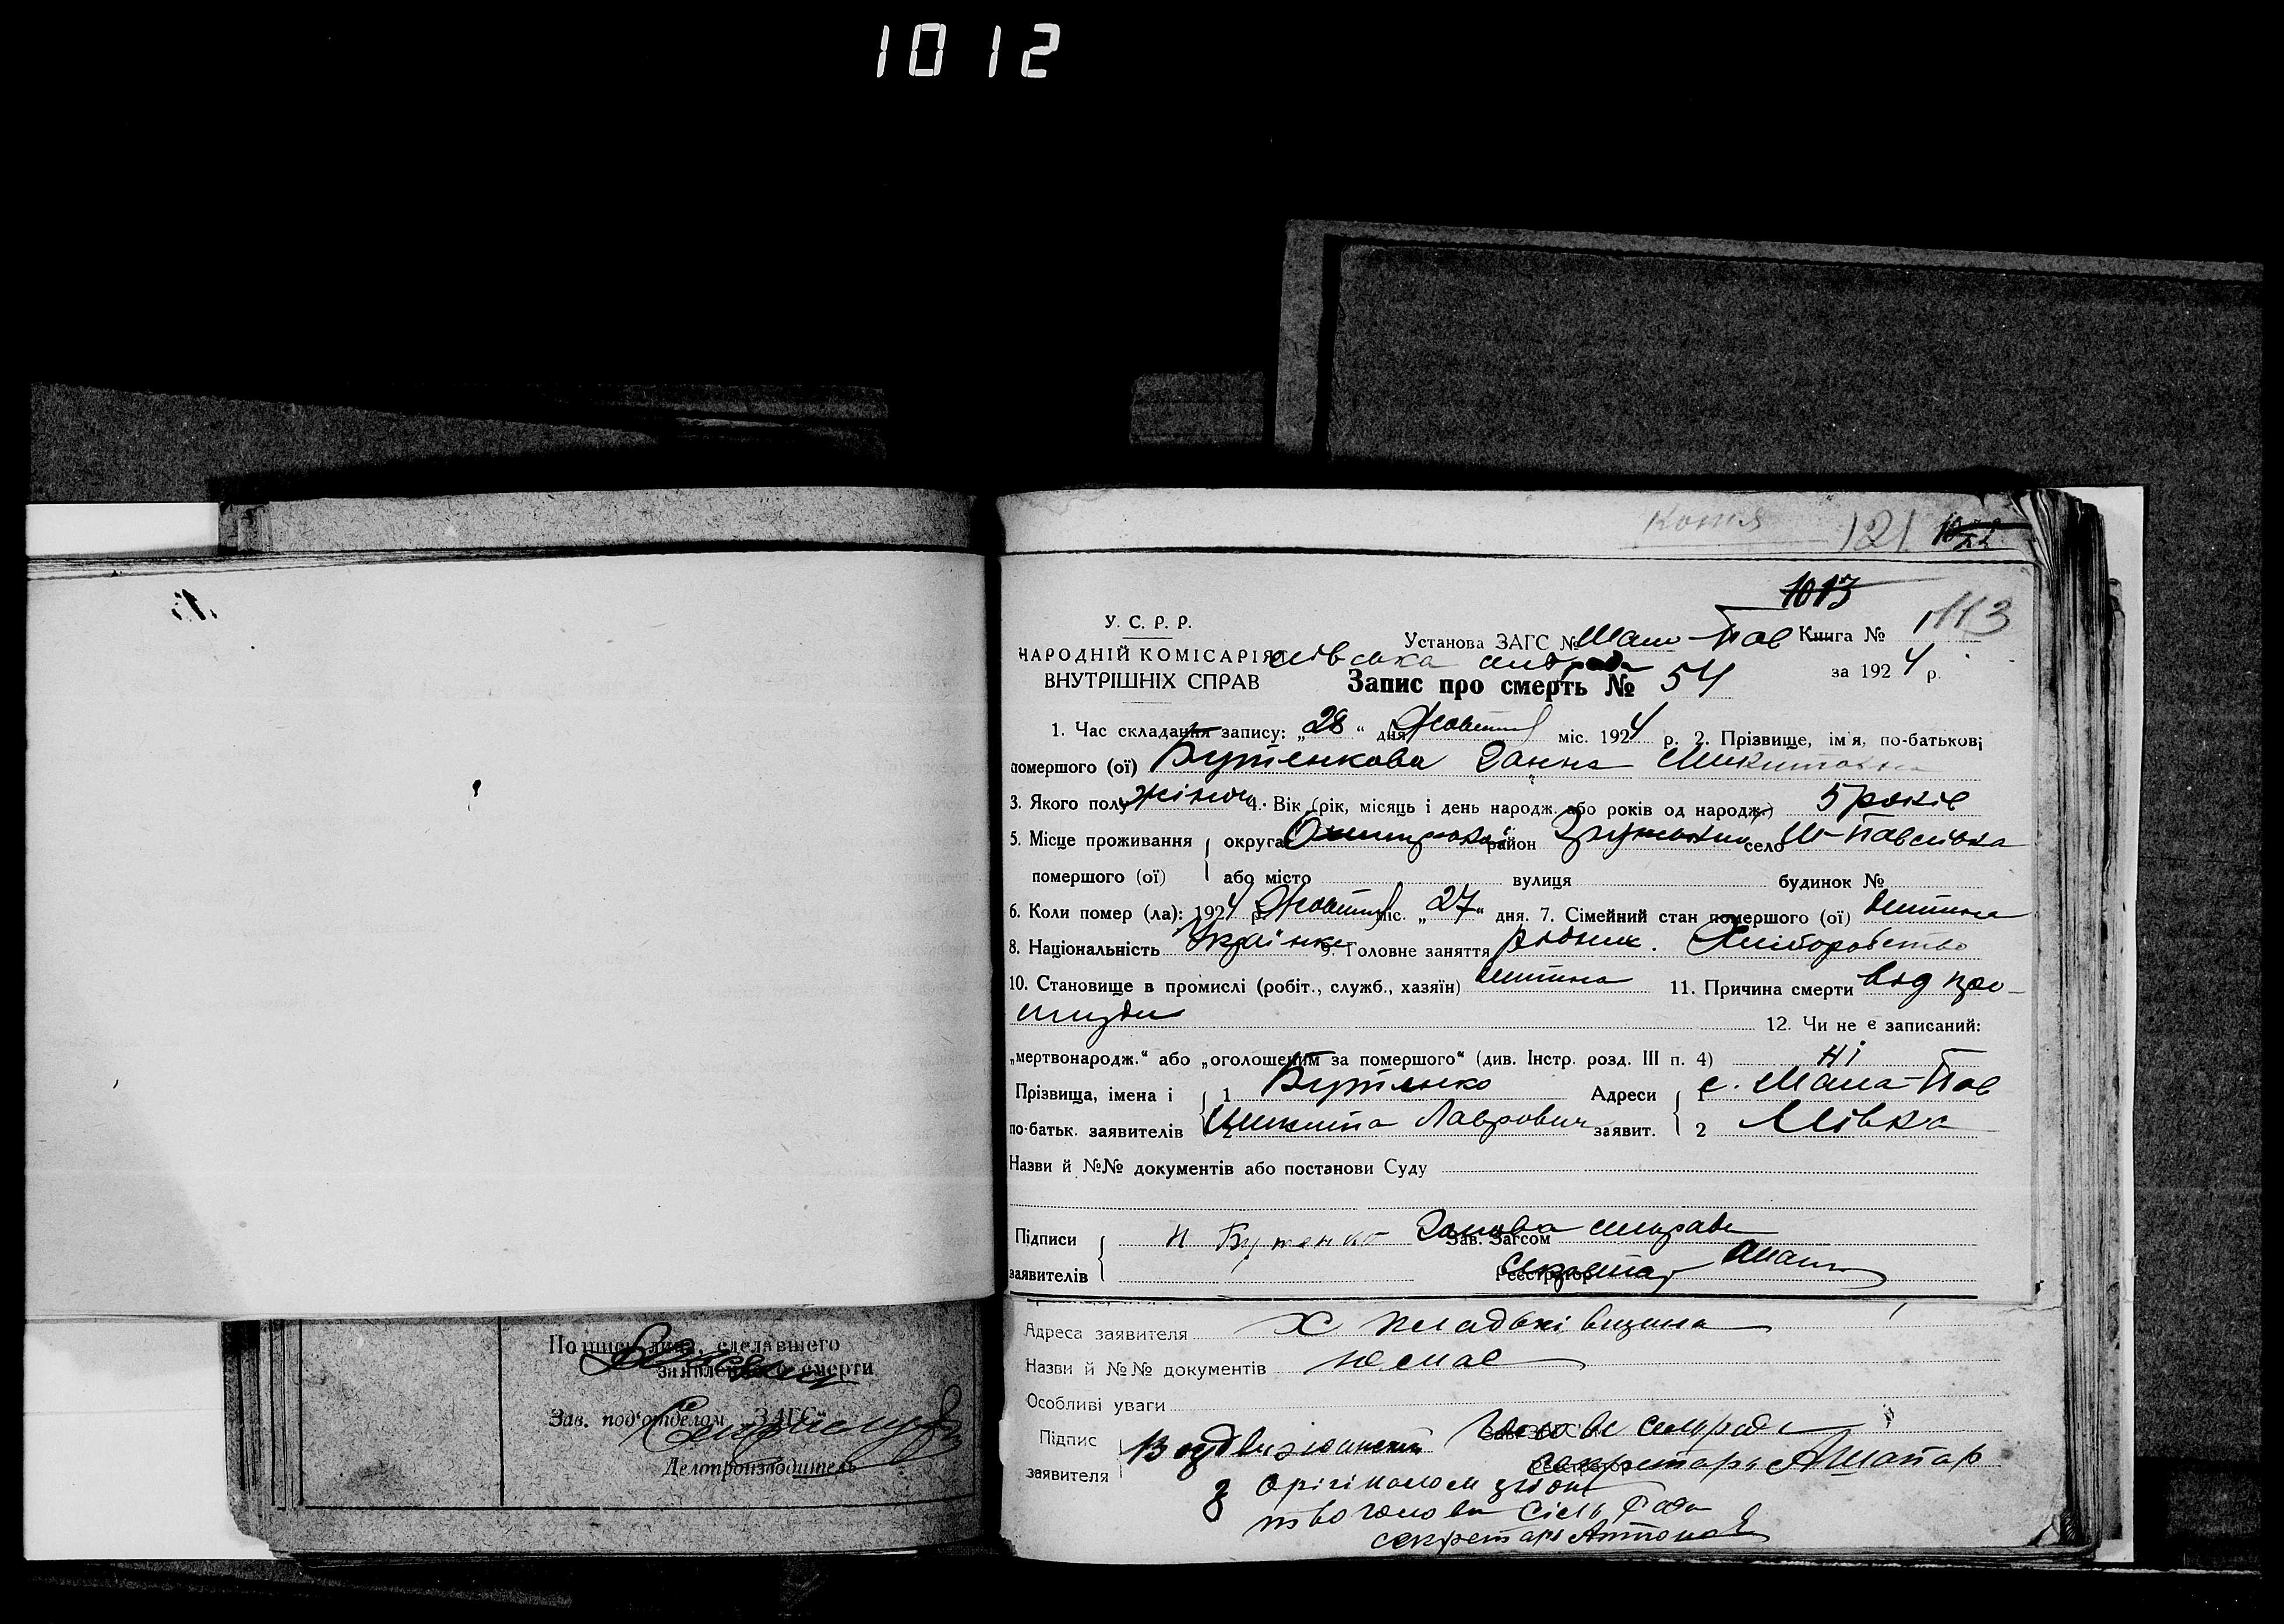 1012
Копия 121
1013
У. С. Р. Р.
НАРОДНІЙ КОМІСАРІЯТ
ВНУТРІШНІХ СПРАВ
Установа ЗАГС № Мало-Пав Книга № 113
лівська сільрада за 1924 р.
Запис про смерть № 54
1. Час складання запису: „28“ дня Жовтня міс. 1924 р. 2. Прізвище, ім'я, по-батькові
помершого (ої) Бутенкова Ганна Микитовна
3. Якого полу жіноч 4. Вік (рік, місяць і день народж. або років од народж.) 5 років
5. Місце проживання округа район село М-Павлівка
помершого (ої) або місто вулиця будинок №
6. Коли помер (ла): 1924 р. Жовтня міс. „27“ дня. 7. Сімейний стан помершого (ої) дитина
8. Національність Українка 9. Головне заняття родит. Хліборобство
10. Становище в промислі (робіт., служб., хазяїн) дитина 11. Причина смерти від про-
студи
12. Чи не є записаний:
„мертвонародж.“ або „оголошеним за помершого“ (див. Інстр. розд. III п. 4) Ні
Прізвища, імена і 1 Бутенко Адреси 1 с. Мала-Пав
по-батьк. заявителів 2 Микита Лаврович заявит. 2 лівка
Назви й №№ документів або постанови Суду
Підписи Н Бутенко Голова сільради
Зав. Загсом
заявителів Секретар
Реєстратор
Адреса заявителя х
Назви й №№ документів немає
Особливі уваги
Підпис Воздвиженский Голова сільради
заявителя секретарь АШапар
З орігіналом згідно
тво голови Сіль Ради
секретарь
Подпись лица, сделавшего
заявление о смерти
Зав. под'отделом „ЗАГС“
Делопроизводитель